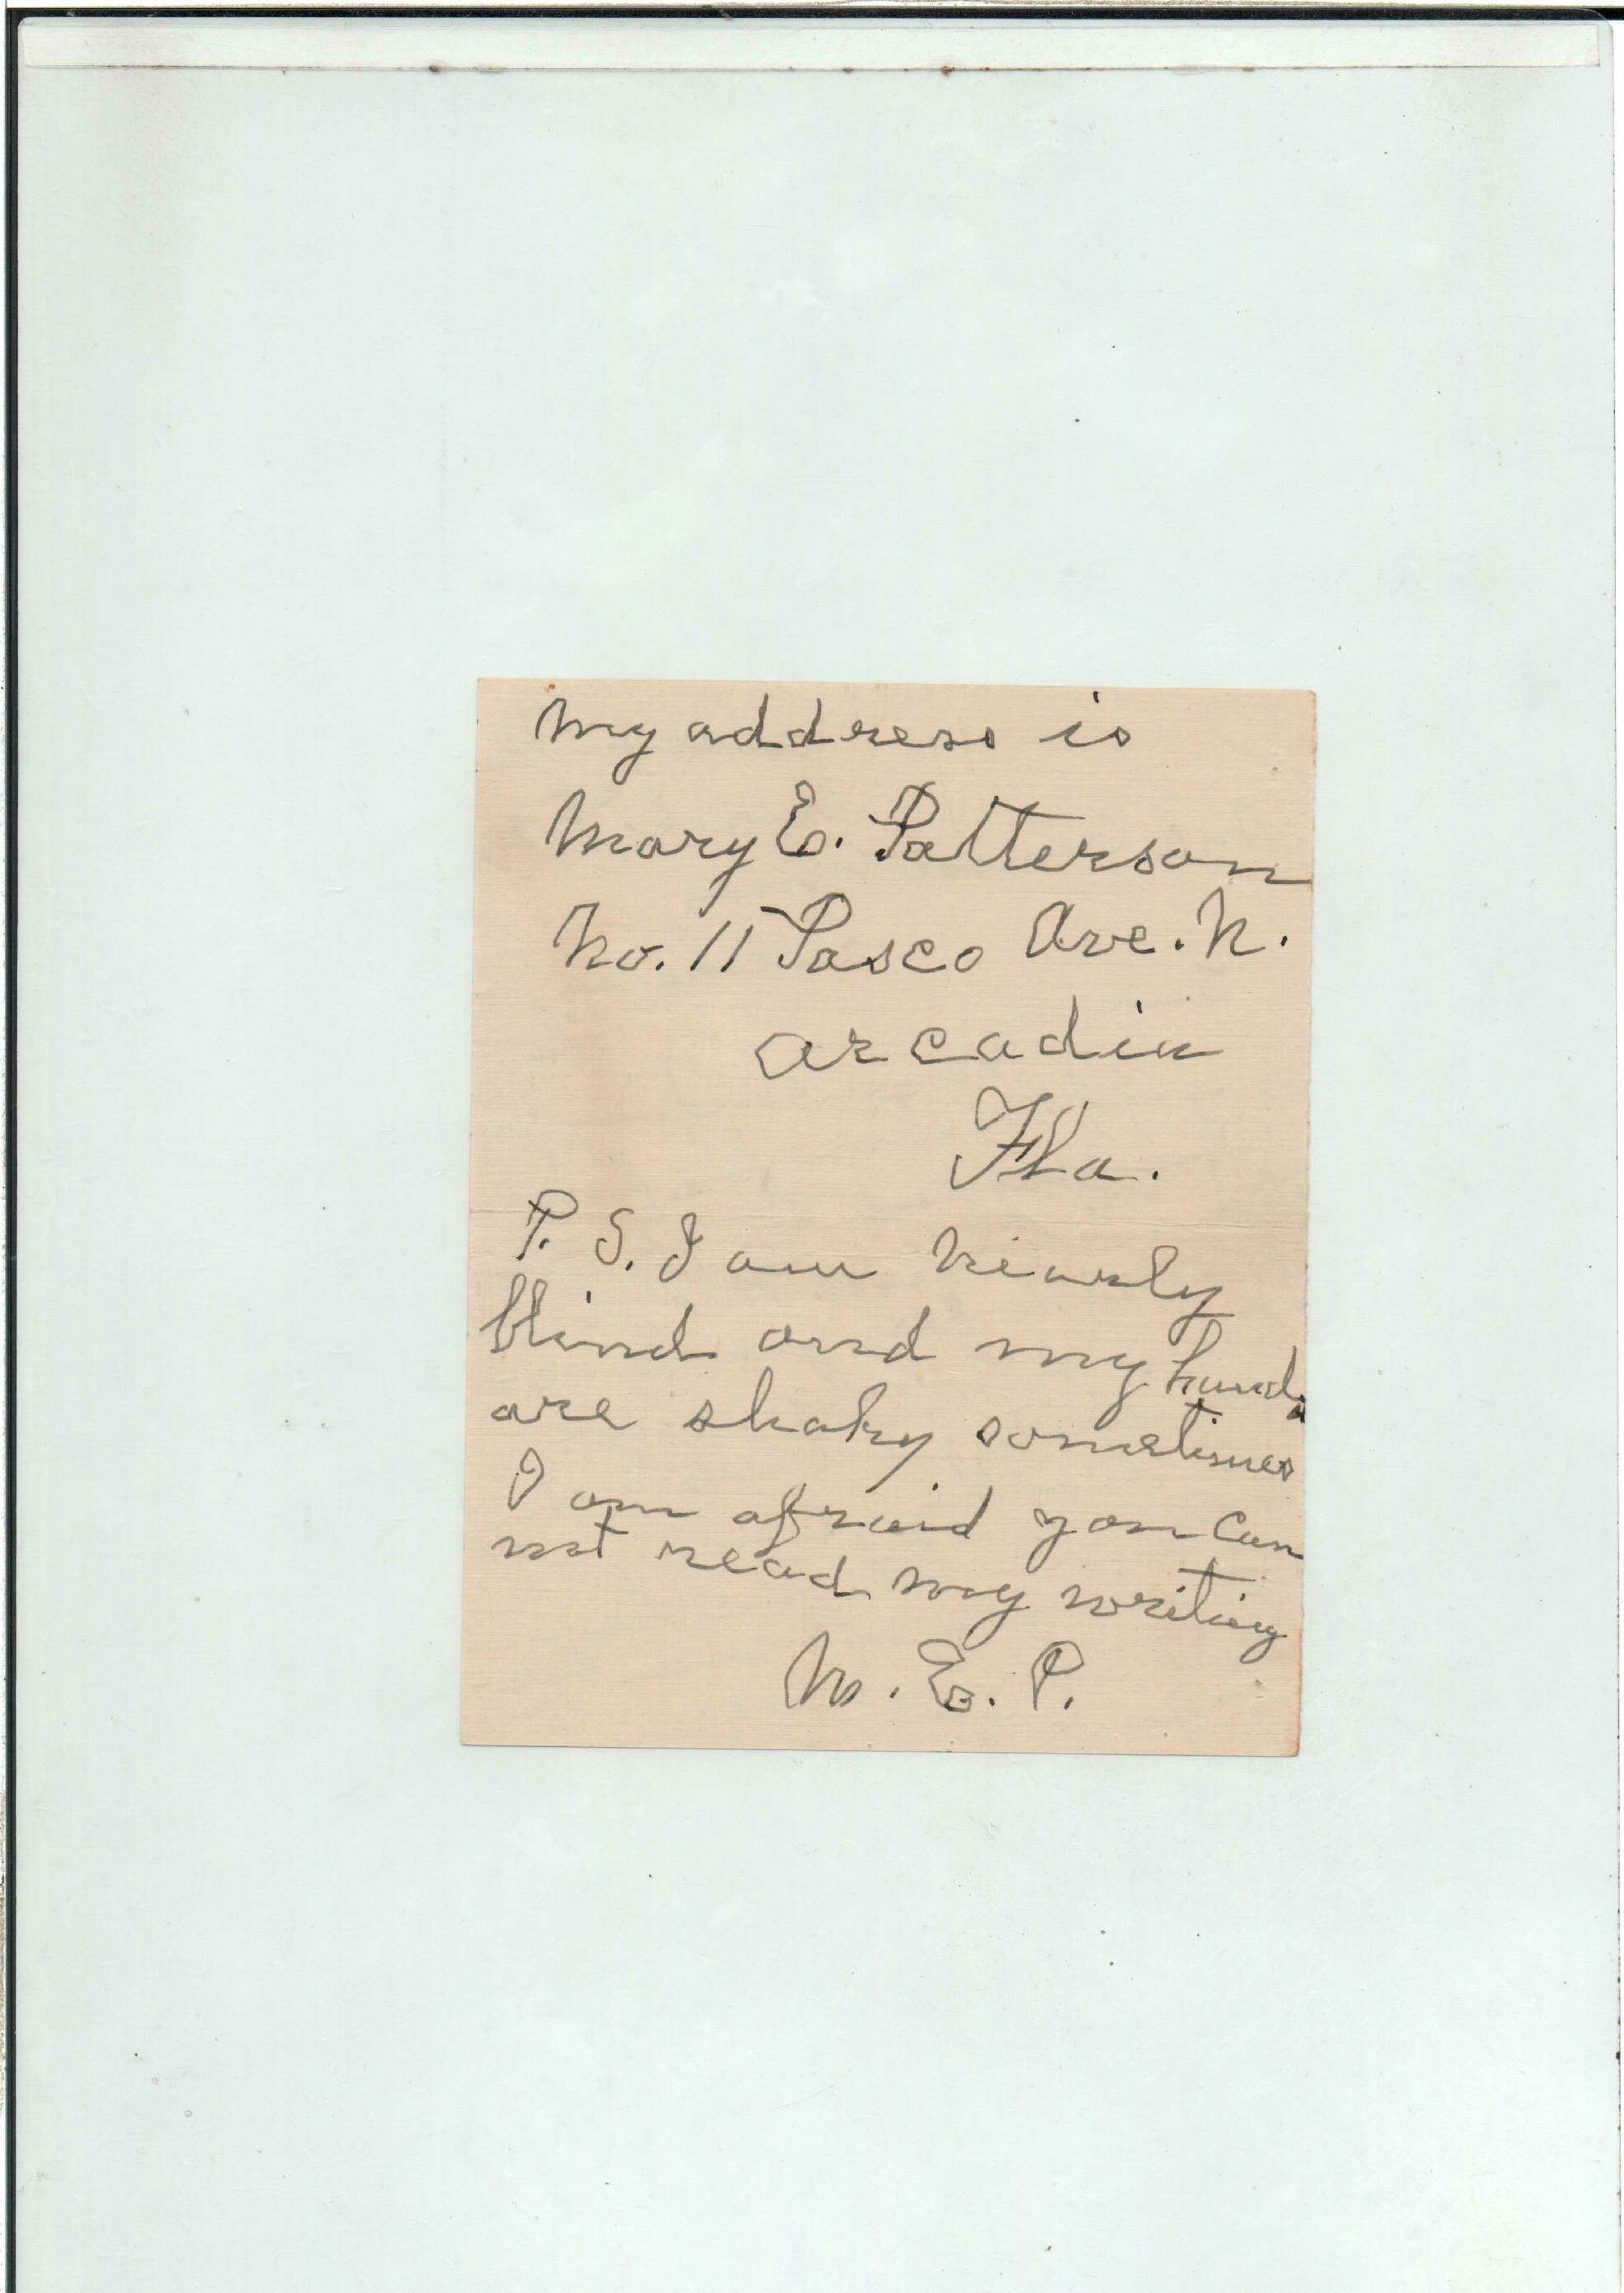 My address is
Mary E. Patterson
No. 11 Pasco Ave. N.
Arcadia
Fla.
P. S. I am nearly
blind and my hands
are shaky sometimes
I am afraid you can
not read my writing
M. E. P.